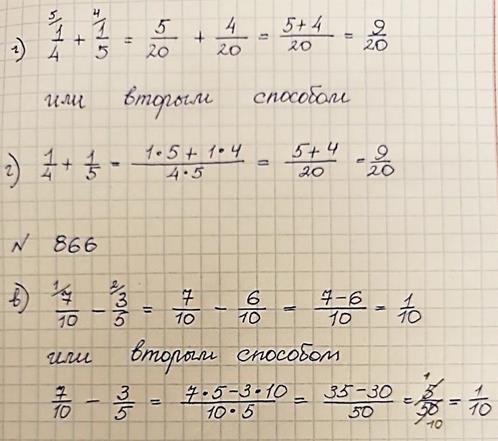 г) ⁵⁄1/4 + ⁴⁄1/5 = 5/20 + 4/20 = (5+4)/20 = 9/20
или вторым способом
г) 1/4 + 1/5 = (1·5+1·4)/(4·5) = (5+4)/20 = 9/20
N 866
в) ¹⁄7/10 - ²⁄3/5 = 7/10 - 6/10 = (7-6)/10 = 1/10
или вторым способом
7/10 - 3/5 = (7·5-3·10)/(10·5) = (35-30)/50 = ¹5/50₁₀ = 1/10